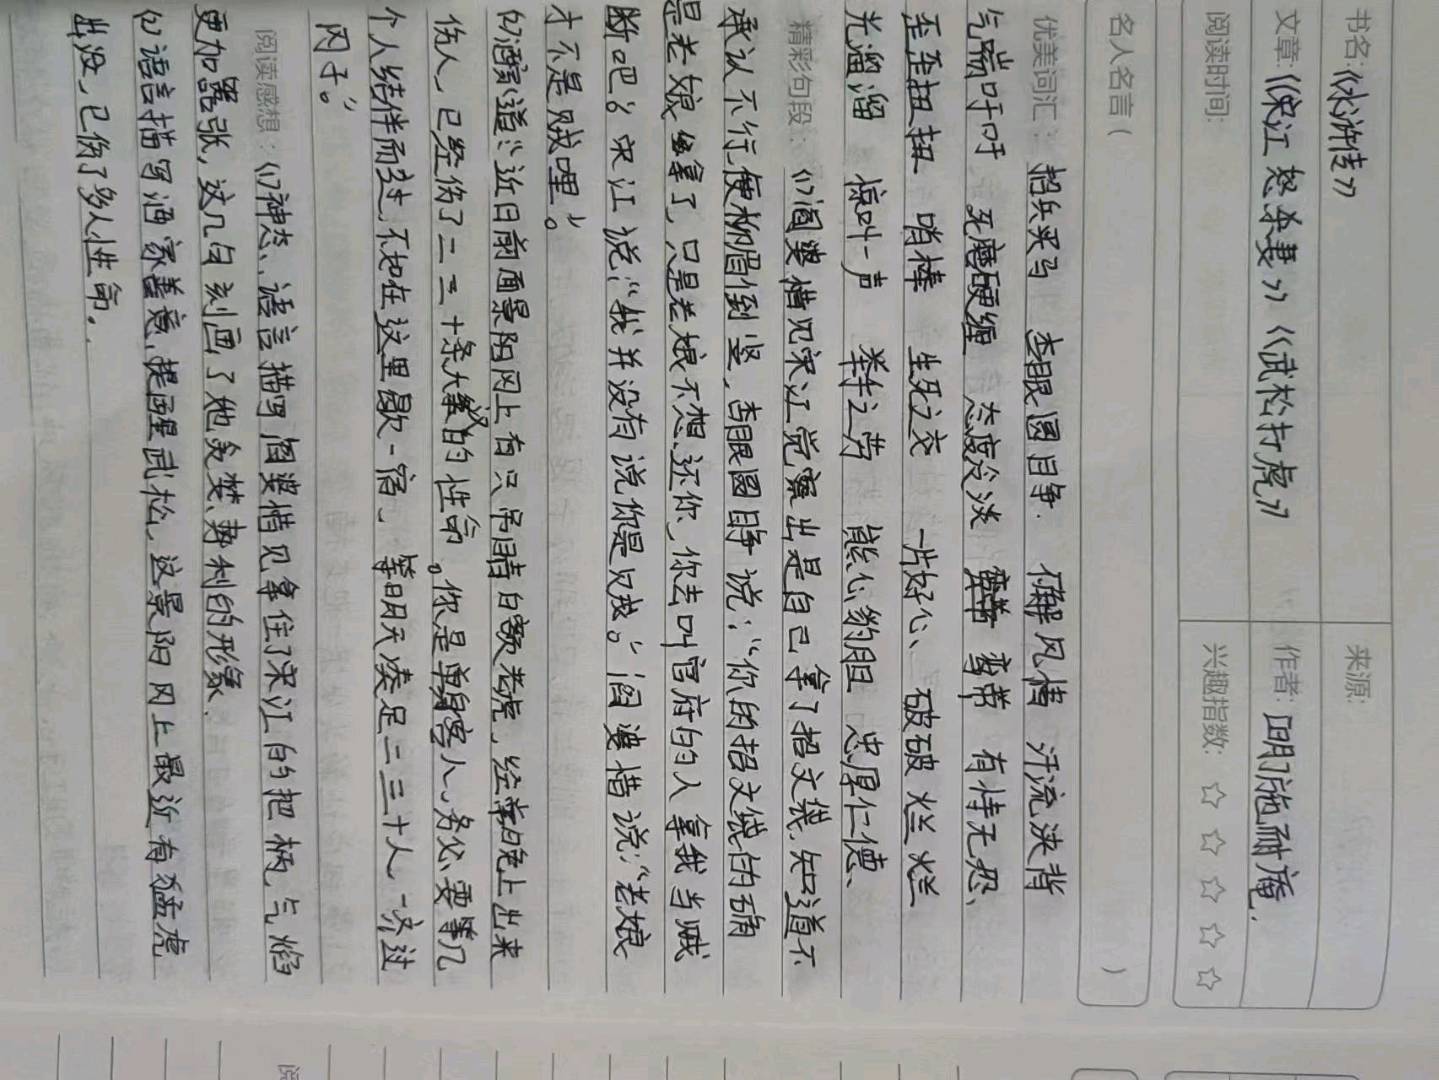 书名:《水浒传》 来源:
文章:《宋江怒杀妻》《武松打虎》 作者: 明施耐庵.
阅读时间: 兴趣指数: ☆ ☆ ☆ ☆ ☆
名人名言 ( )
优美词汇: 招兵买马 杏眼圆睁. 解风情 汗流浃背
气喘吁吁 死磨硬缠 态度冷淡 鸾带 有恃无恐、
歪歪扭扭 哨棒 生死之交 一片好心、 破破烂烂
光溜溜 惊叫一声 举手之劳 熊心豹胆 忠厚仁德、
精彩句段: (1)阎婆惜见宋江觉察出是自己拿了招文袋,知道不
承认不行,便柳眉倒竖,杏眼圆睁说:“你的招文袋的确
是老娘拿了,只是老娘不想还你,你去叫官府的人拿我当贼
断吧”宋江说:“我并没有说你是贼。”阎婆惜说:“老娘
才不是贼哩。”
(2)酒家道:“近日前面景阳冈上有只吊睛白额老虎,经常晚上出来
伤人,已经伤了二三十条大汉的性命。你是单身客人,务必要等几
个人结伴而过,不如在这里歇一宿,等明天凑足二三十人,一齐过
冈子。”
阅读感想: (1)神态、语言描写阎婆惜见拿住了宋江的把柄,气焰
更加嚣张,这几句刻画了她贪婪、势利的形象.
(2)语言描写酒家善意,提醒武松,这景阳冈上最近有猛虎
出没,已伤了多人性命.
阅